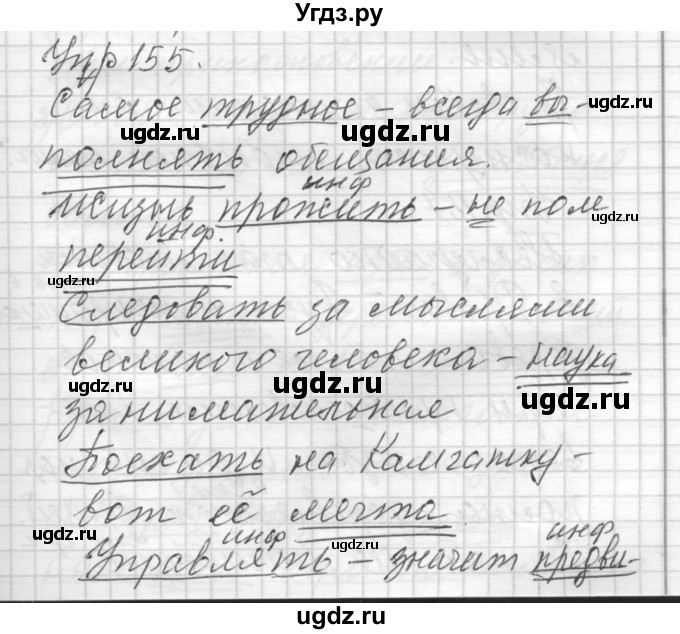 Угдз.ру
Упр 155.
Самое трудное – всегда вы-
ugdz.ru ugdz.ru ugdz.ru
полнять обещания.
инф
Жизнь прожить – не поле
ugdz.ru
инф.
перейти
ugdz.ru ugdz.ru
Следовать за мыслями
великого человека – наука
ugdz.ru ugdz.ru ugdz.ru
занимательная
Поехать на Камчатку –
вот её мечта.
ugdz.ru ugdz.ru
инф инф
Управлять – значит предви-
ugdz.ru
ugdz.ru